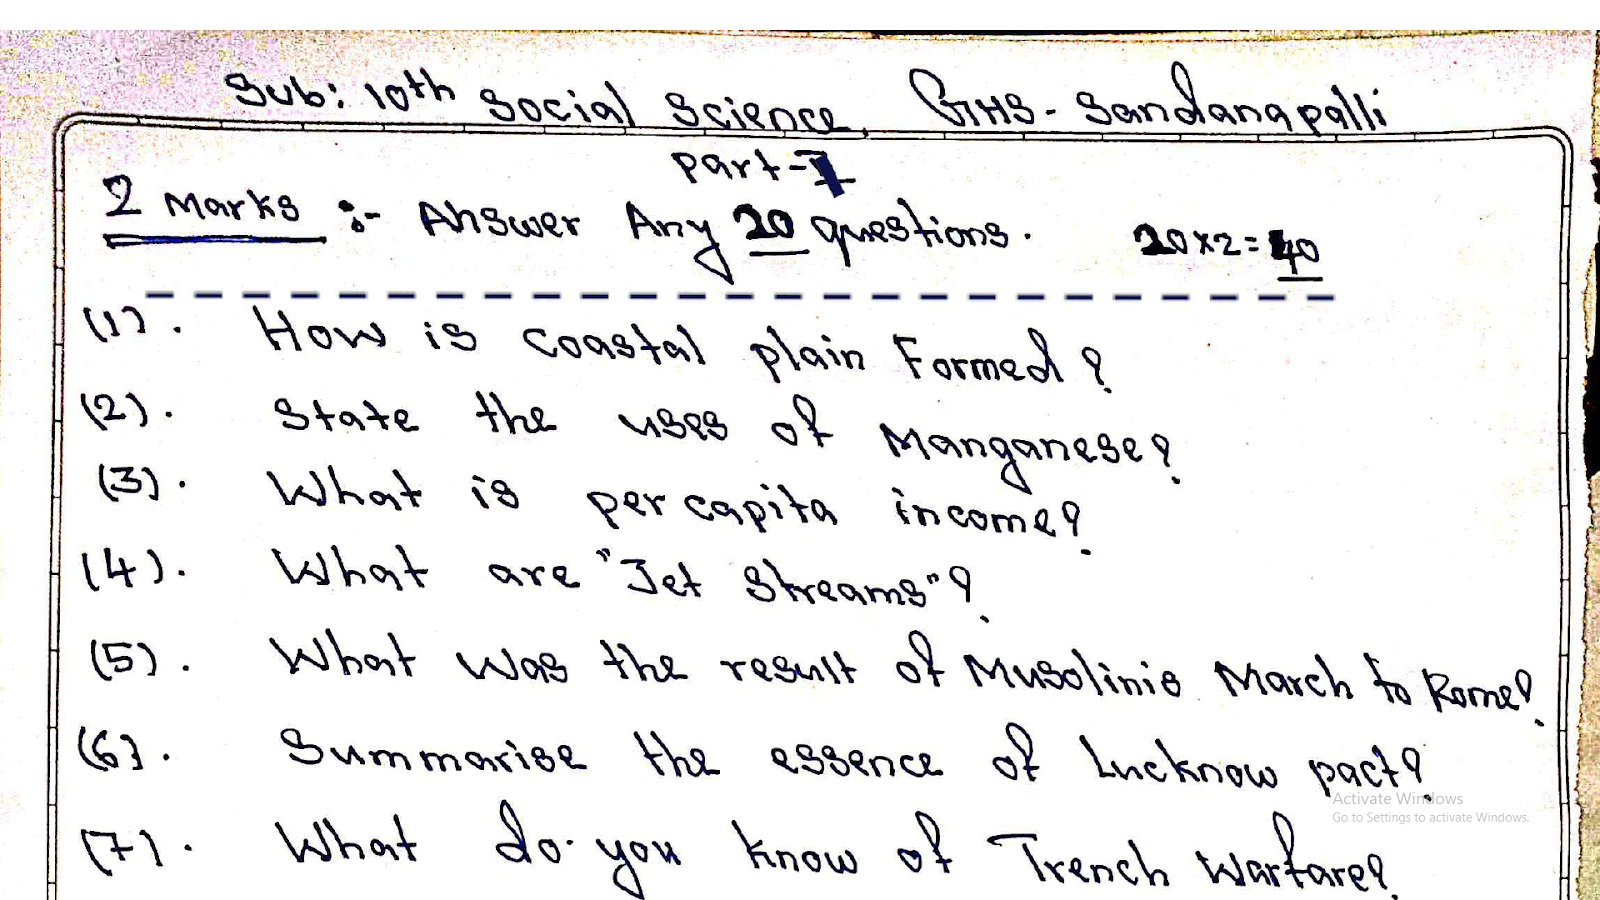 Sub: 10th Social Science, GHS - Sandanapalli
Part-I
2 Marks :- Answer Any 20 questions. 20x2=40
(1). How is coastal plain Formed?
(2). State the uses of Manganese?
(3). What is per capita income?
(4). What are "Jet Streams"?
(5). What was the result of Musolinis March to Rome?
(6). Summarise the essence of Lucknow pact?
(7). What do you know of Trench Warfare?
Activate Windows
Go to Settings to activate Windows.